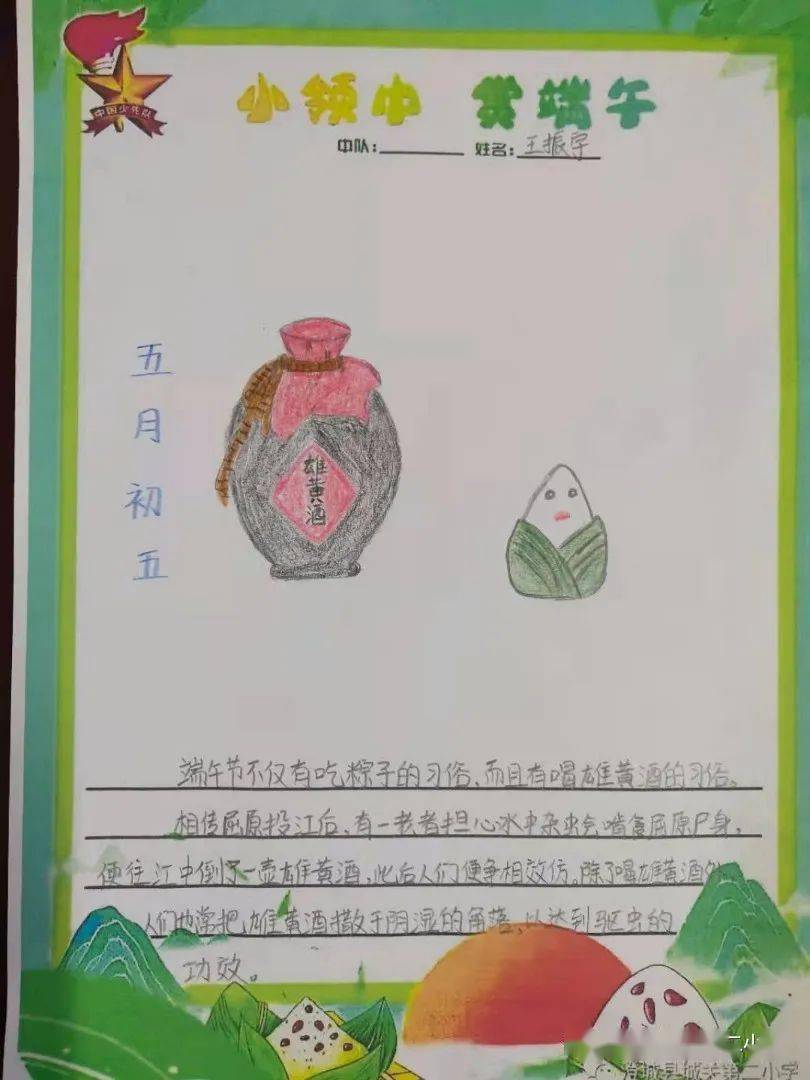 中国少先队
小领巾 赏端午
中队: 姓名:王振宇
五
月
初
五
雄
黄
酒
端午节不仅有吃粽子的习俗,而且有喝雄黄酒的习俗。
相传屈原投江后,有一老者担心水中杂虫会啃食屈原尸身,
便往江中倒了一壶雄黄酒,此后人们便争相效仿。除了喝雄黄酒外,
人们也常把雄黄酒撒于阴湿的角落,以达到驱虫的
功效。
二小
城关第二小学